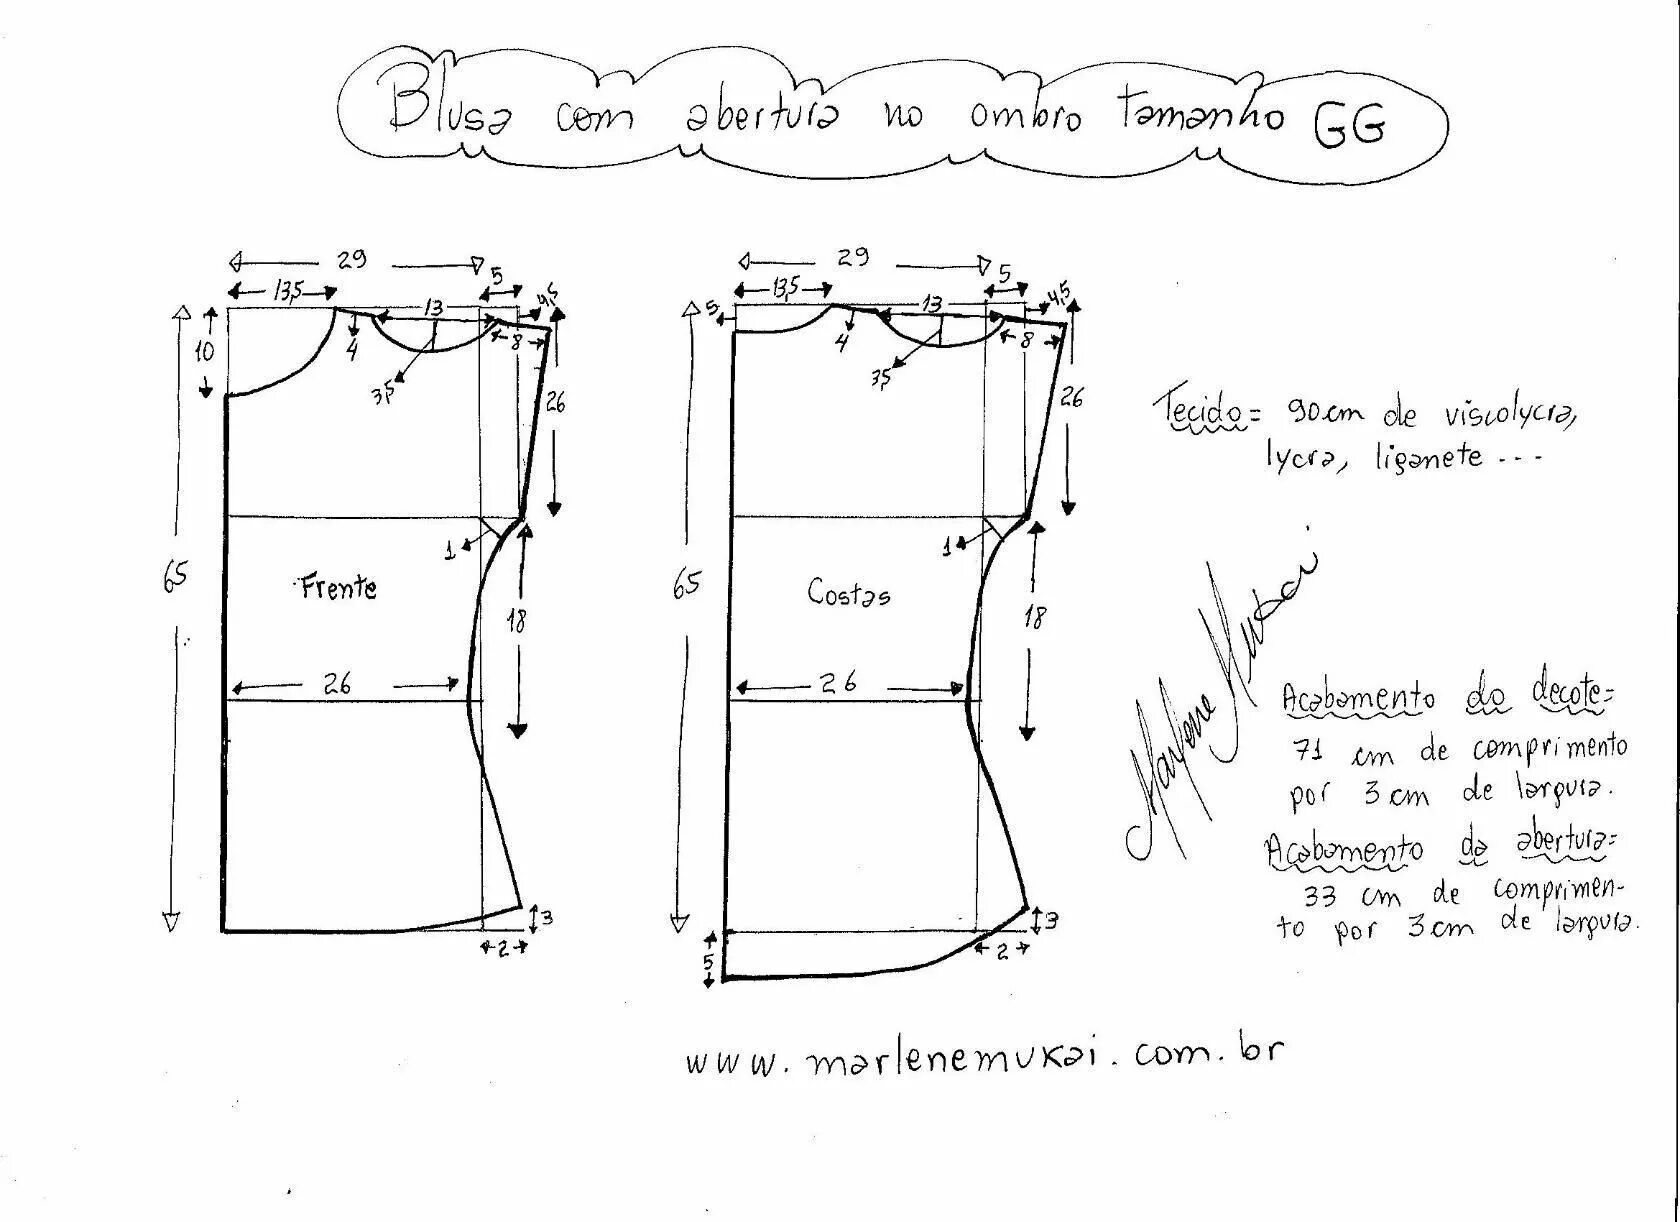 Blusa com abertura no ombro tamanho GG
29
13,5
5
4,5
13
10
4
3,5
8
26
65
1
Frente
18
26
3
2
29
13,5
5
4,5
5
13
4
3,5
8
26
65
1
Costas
18
26
3
2
5
Tecido= 90cm de viscolycra,
lycra, liganete ---
Marlene Mukai
Acabamento do decote=
71 cm de comprimento
por 3cm de largura.
Acabamento da abertura=
33 cm de comprimen-
to por 3cm de largura.
www.marlenemukai.com.br